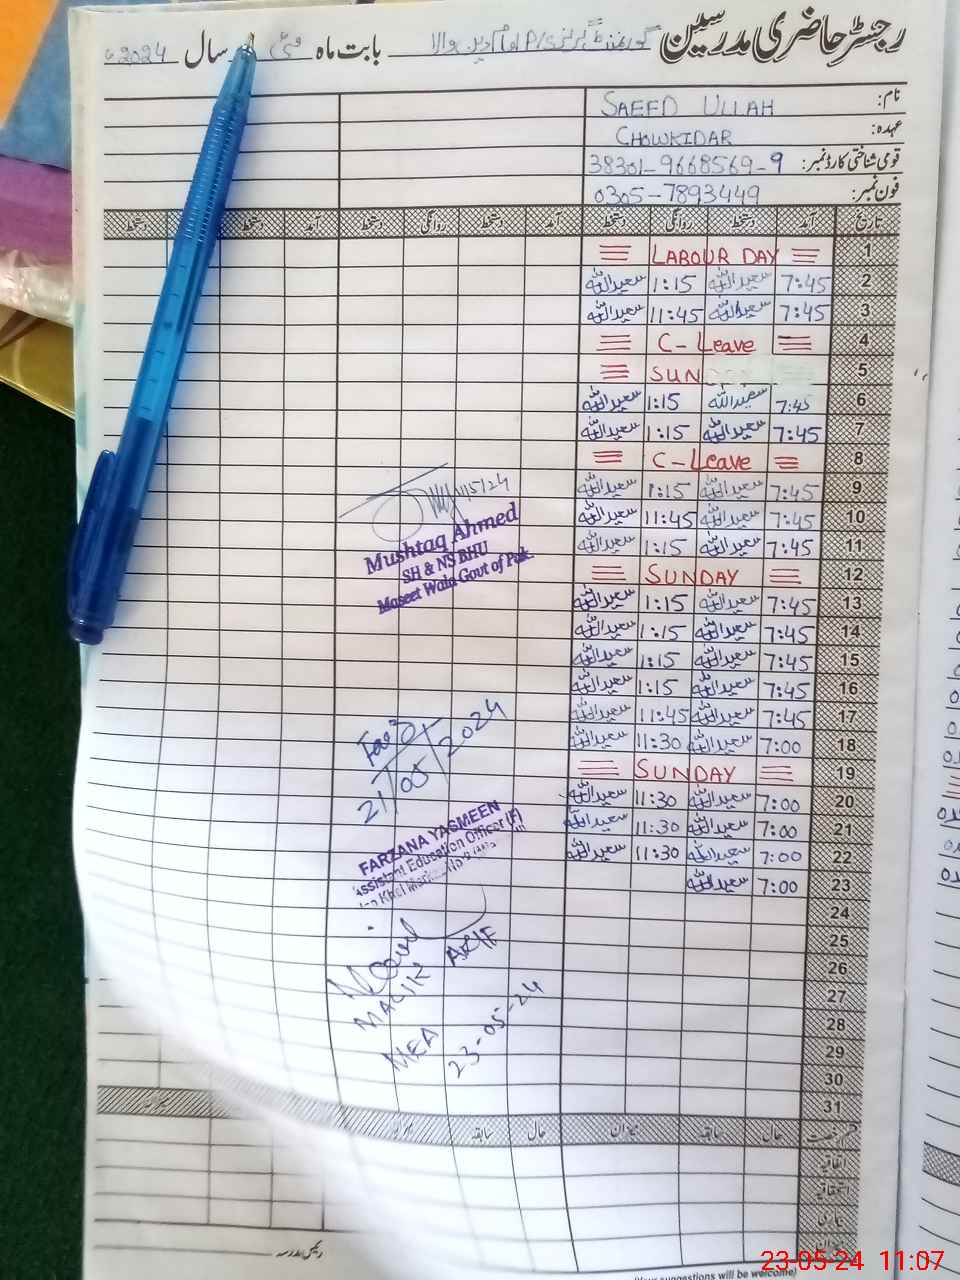 رجسٹر حاضری مدرسین گورنمنٹ بابت ماہ مئی سال 2024ء
نام: SAEED ULLAH
عہدہ: CHOWKIDAR
قومی شناختی کارڈ نمبر: 38301-9668569-9
فون نمبر: 0305-7893449
تاریخ آمد دستخط روانگی دستخط آمد دستخط روانگی دستخط آمد دستخط دستخط
1 LABOUR DAY
2 7:45 سعیداللہ 1:15 سعیداللہ
3 7:45 سعیداللہ 11:45 سعیداللہ
4 C-Leave
5 SUNDAY
6 7:45 سعیداللہ 1:15 سعیداللہ
7 7:45 سعیداللہ 1:15 سعیداللہ
8 C-Leave
9 7:45 سعیداللہ 1:15 سعیداللہ
10 7:45 سعیداللہ 11:45 سعیداللہ
11 7:45 سعیداللہ 1:15 سعیداللہ
12 SUNDAY
13 7:45 سعیداللہ 1:15 سعیداللہ
14 7:45 سعیداللہ 1:15 سعیداللہ
15 7:45 سعیداللہ 1:15 سعیداللہ
16 7:45 سعیداللہ 1:15 سعیداللہ
17 7:45 سعیداللہ 11:45 سعیداللہ
18 7:00 سعیداللہ 11:30 سعیداللہ
19 SUNDAY
20 7:00 سعیداللہ 11:30 سعیداللہ
21 7:00 سعیداللہ 11:30 سعیداللہ
22 7:00 سعیداللہ 11:30 سعیداللہ
23 7:00 سعیداللہ
24
25
26
27
28
29
30
31
Mushtaq Ahmed
SH & NS BHU
Maseet Wala Govt of Pak
21/05/2024
FARZANA YASMEEN
Assistant Education Officer (F)
Khel Markaz
MALIK ARIF
MEA
23-05-24
حال سابقہ میزان حال سابقہ میزان
اتفاقیہ
استحقاقیہ
بیماری
میزان
رئیس مدرسہ
(Your suggestions will be welcome)
23-05-24 11:07